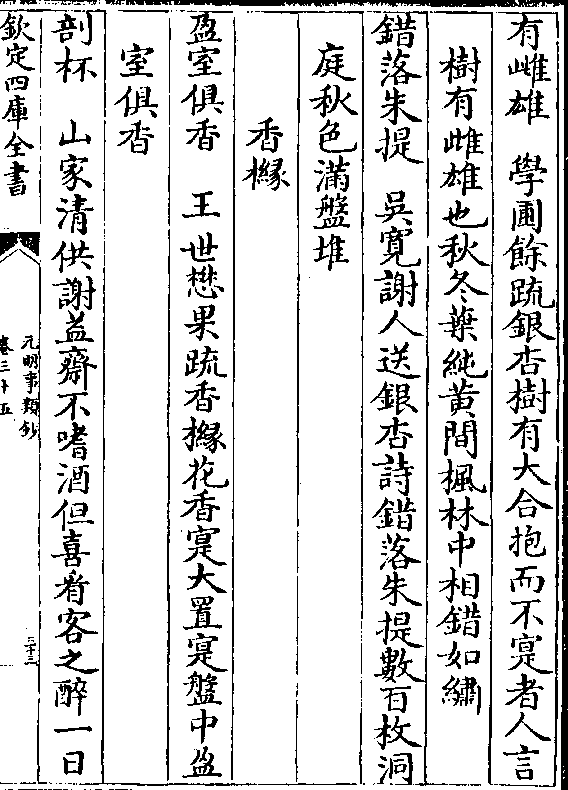 有雌雄　學圃餘疏銀杏樹有大合抱而不寔者人言
樹有雌雄也秋冬葉純黄間楓林中相錯如繡
錯落朱提　吳寛謝人送銀杏詩錯落朱提數百枚洞
庭秋色滿盤堆
香櫞
盈室俱香　王世懋果疏香櫞花香寔大置寔盤中盈
室俱香
剖杯　山家清供謝益齋不嗜酒但喜看客之醉一日
欽定四庫全書
元明事類鈔
卷三十五
三十三